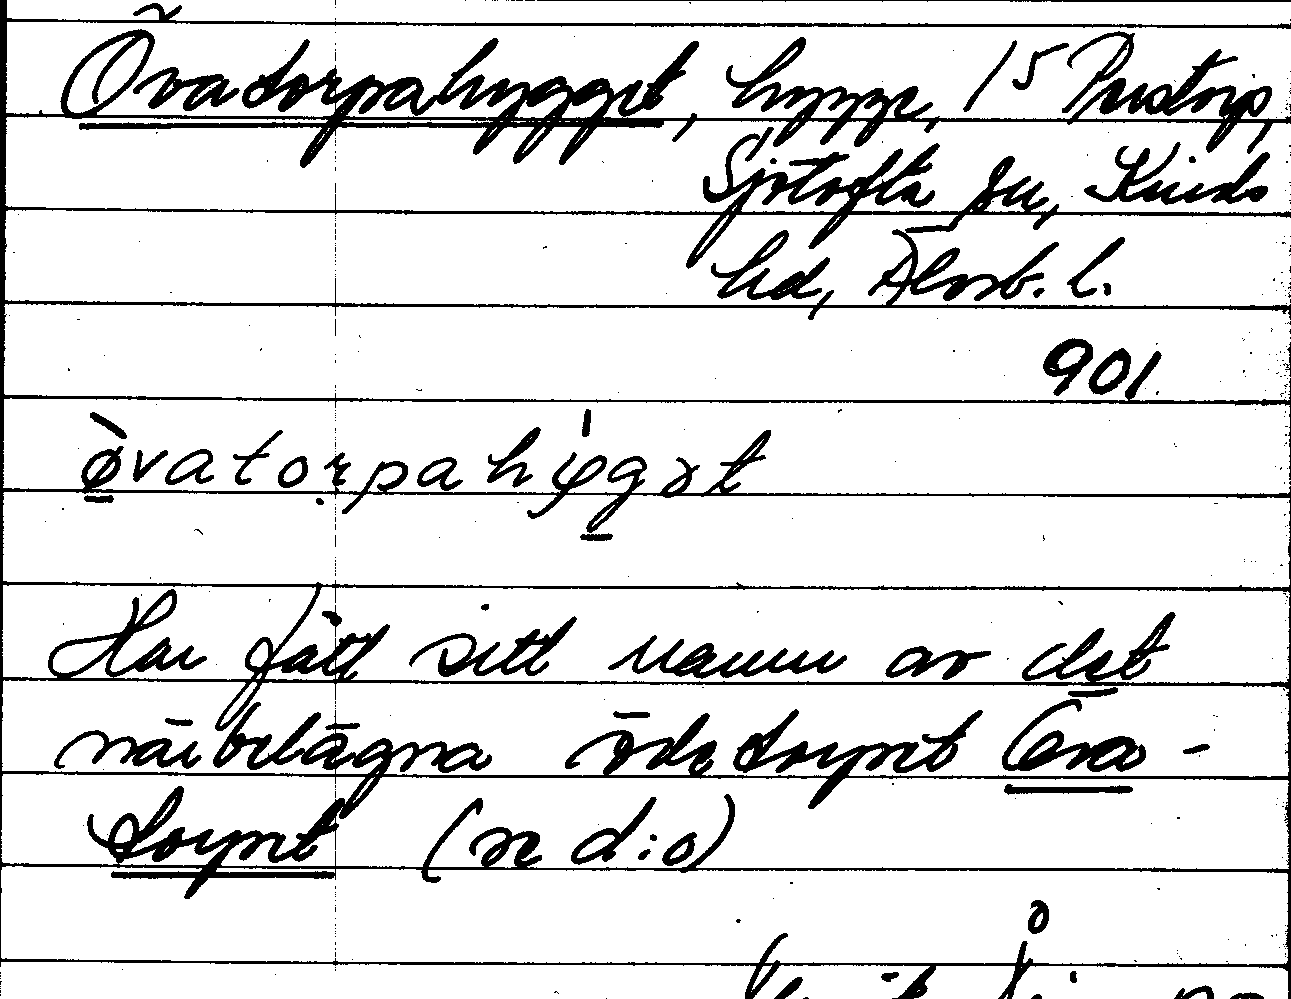 Övatorpahygget, hygge, 15 Prustorp,
Sjötofta sn, Kinds
hd, Älvsb. l.
901
øvatorpahygət
Har fått sitt namn av det
närbelägna ödetorpet Öva-
torpet (se d:o)